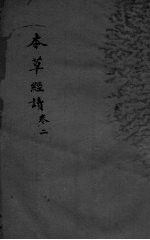 本草經讀卷二